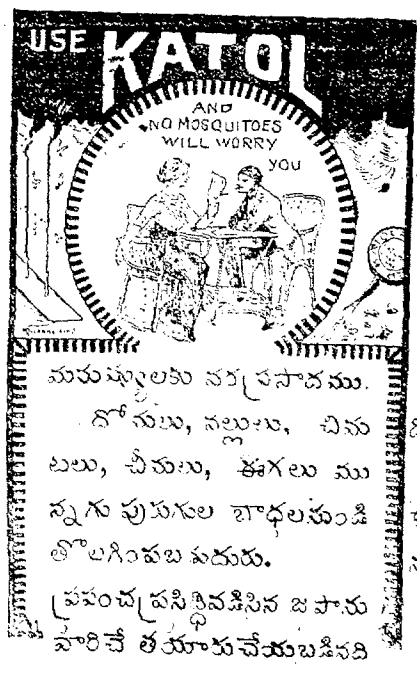 USE KATOL
AND
NO MOSQUITOES
WILL WORRY
YOU
మనుష్యులకు వరప్రసాదము.
దోమలు, నల్లులు, చిను
టలు, చీమలు, ఈగలు ము
న్నగు పురుగుల బాధలనుండి
తొలగింపబడుదురు.
ప్రపంచ ప్రసిద్ధివడసిన జపాను
వారిచే తయారుచేయబడినది